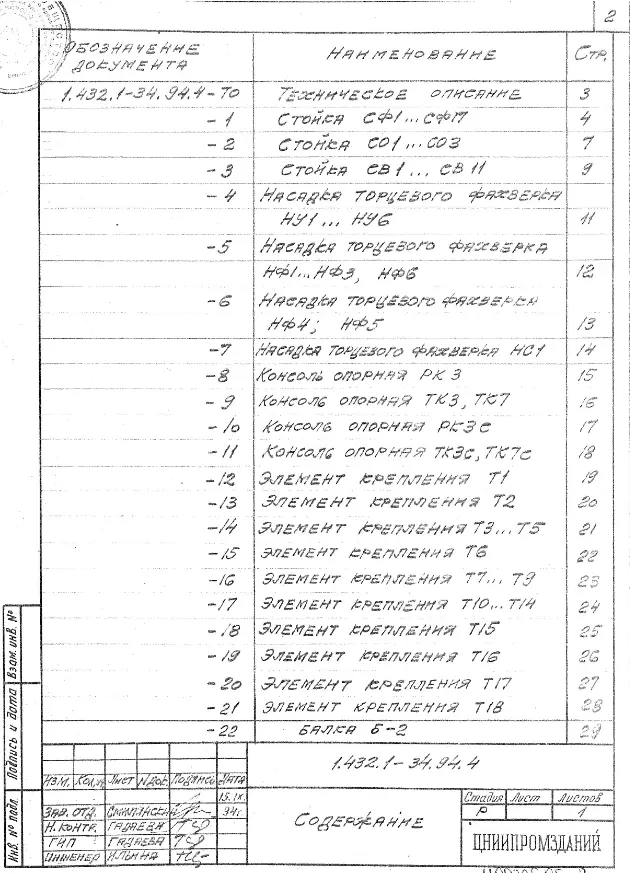 2
ОБОЗНАЧЕНИЕ ДОКУМЕНТА НАИМЕНОВАНИЕ СТР.
1.432.1-34.94.4-ТО ТЕХНИЧЕСКОЕ ОПИСАНИЕ 3
-1 СТОЙКА СФ1...СФ17 4
-2 СТОЙКА СО1...СО3 7
-3 СТОЙКА СВ1...СВ11 9
-4 НАСАДКА ТОРЦЕВОГО ФАХВЕРКА
НУ1...НУ6 11
-5 НАСАДКА ТОРЦЕВОГО ФАХВЕРКА
НФ1...НФ3, НФ6 12
-6 НАСАДКА ТОРЦЕВОГО ФАХВЕРКА
НФ4; НФ5 13
-7 НАСАДКА ТОРЦЕВОГО ФАХВЕРКА НС1 14
-8 КОНСОЛЬ ОПОРНАЯ РК3 15
-9 КОНСОЛЬ ОПОРНАЯ ТК3, ТК7 16
-10 КОНСОЛЬ ОПОРНАЯ РК3с 17
-11 КОНСОЛЬ ОПОРНАЯ ТК3с, ТК7с 18
-12 ЭЛЕМЕНТ КРЕПЛЕНИЯ Т1 19
-13 ЭЛЕМЕНТ КРЕПЛЕНИЯ Т2 20
-14 ЭЛЕМЕНТ КРЕПЛЕНИЯ Т3...Т5 21
-15 ЭЛЕМЕНТ КРЕПЛЕНИЯ Т6 22
-16 ЭЛЕМЕНТ КРЕПЛЕНИЯ Т7...Т9 23
-17 ЭЛЕМЕНТ КРЕПЛЕНИЯ Т10...Т14 24
-18 ЭЛЕМЕНТ КРЕПЛЕНИЯ Т15 25
-19 ЭЛЕМЕНТ КРЕПЛЕНИЯ Т16 26
-20 ЭЛЕМЕНТ КРЕПЛЕНИЯ Т17 27
-21 ЭЛЕМЕНТ КРЕПЛЕНИЯ Т18 28
-22 БАЛКА Б-2 29
1.432.1-34.94.4
ИЗМ. КОЛ.УЧ ЛИСТ №ДОК. ПОДПИСЬ ДАТА
15.IX.
ЗАВ. ОТД. 94г
Н.КОНТР. ГАДАЕВА
ГИП ГАДАЕВА
ИНЖЕНЕР ИЛЬИНА
СОДЕРЖАНИЕ
Стадия Лист Листов
Р 1
ЦНИИПРОМЗДАНИЙ
Инв. № подл. Подпись и дата Взам. инв. №